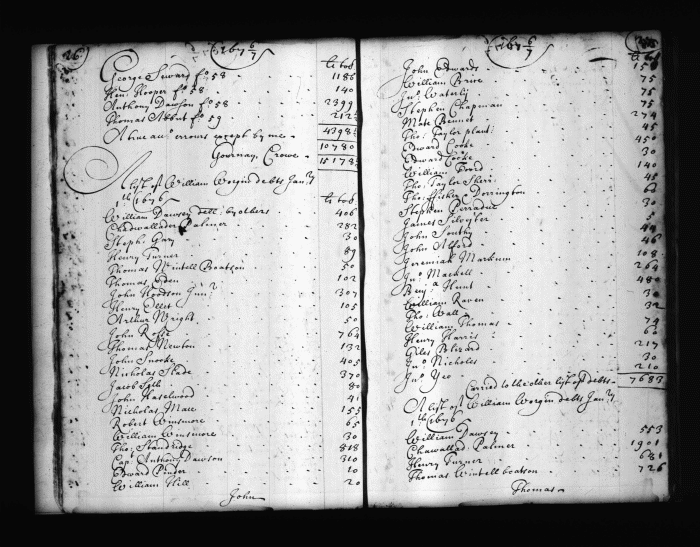 26
1676/7
lb tob
George Seward fo 58 1186
Hen: Hooper fo 58 140
Anthony Dawson fo 58 2399
Thomas Abbot fo 59
A true errours except by me
10780
Gournay Crowe
A list of William Worgin debts Jan:ry
1th 1676 lb tob
William Dawsey dell: by others 406
Chadwallader Palmer 282
Steph: Gary 30
Henry Turner 89
Thomas Wintell Boatson 50
Thomas Eden 102
John Hoodson Jun:r 307
Henry 105
Arthur Wright 50
John 764
Thomas Newton 132
John Snooke 405
Nicholas Slade 370
Jacob 80
John Haselwood 41
Nicholas Mace 155
Robert Winsmore 65
William Winsmore 30
Tho: Standridge 818
Capt Anthony Dawson 310
Edward Pinder 10
William Hill 20
John
1676/7
John Edwards
William Brice 75
Jno Waterly 75
Stephen Chapman 75
Mate Bennet 274
Tho: Taylor plant: 45
Edward Cooke 450
Edward Cooke 30
William Foord 140
Tho: Taylor Sheri: 45
Tho: Fisher Dorrington
Stephen 30
James Selvester 5
John Southy 44
John Alford 46
Jeremiah Marknum 108
Jno Mackell 264
Benj:a Hunt 480
William Raven 30
Tho: Wall 32
William Thomas 74
Henry Harris 60
Giles Blizard 217
Jno Nicholes 30
Jno Geo 210
Carried to the other list of debts 7683
A list of William Worgin debts Jan:ry
1th 1676
William Dawsey 553
Chawallad: Palmer 1901
Henry Turner 681
Thomas Wintell boatson 726
Thomas